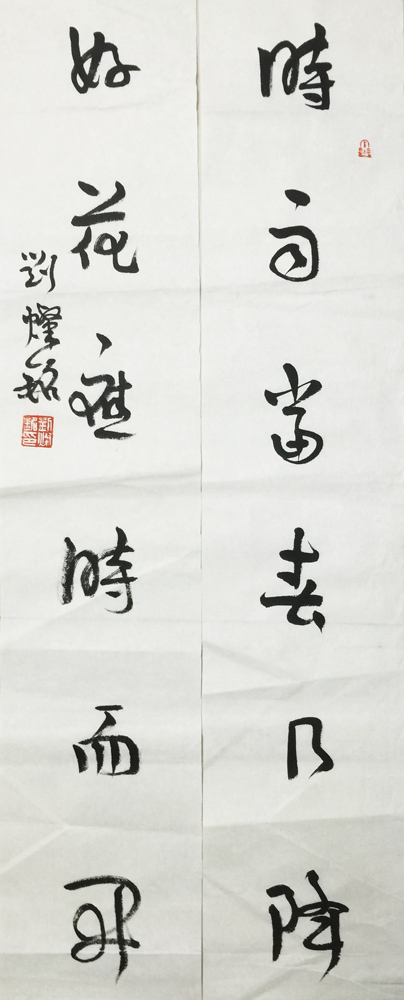 時雨當春乃降
好花應時而開
劉燦銘